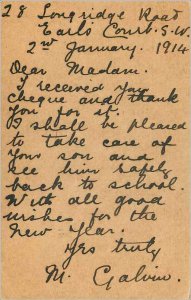 28 Longridge Road
Earls Court. S.W.
2nd January. 1914
Dear Madam.
I received your
cheque and thank
you for it.
I shall be pleased
to take care of
your son and
see him safely
back to school.
With all good
wishes for the
New Year.
Yrs truly
M. Galvin.